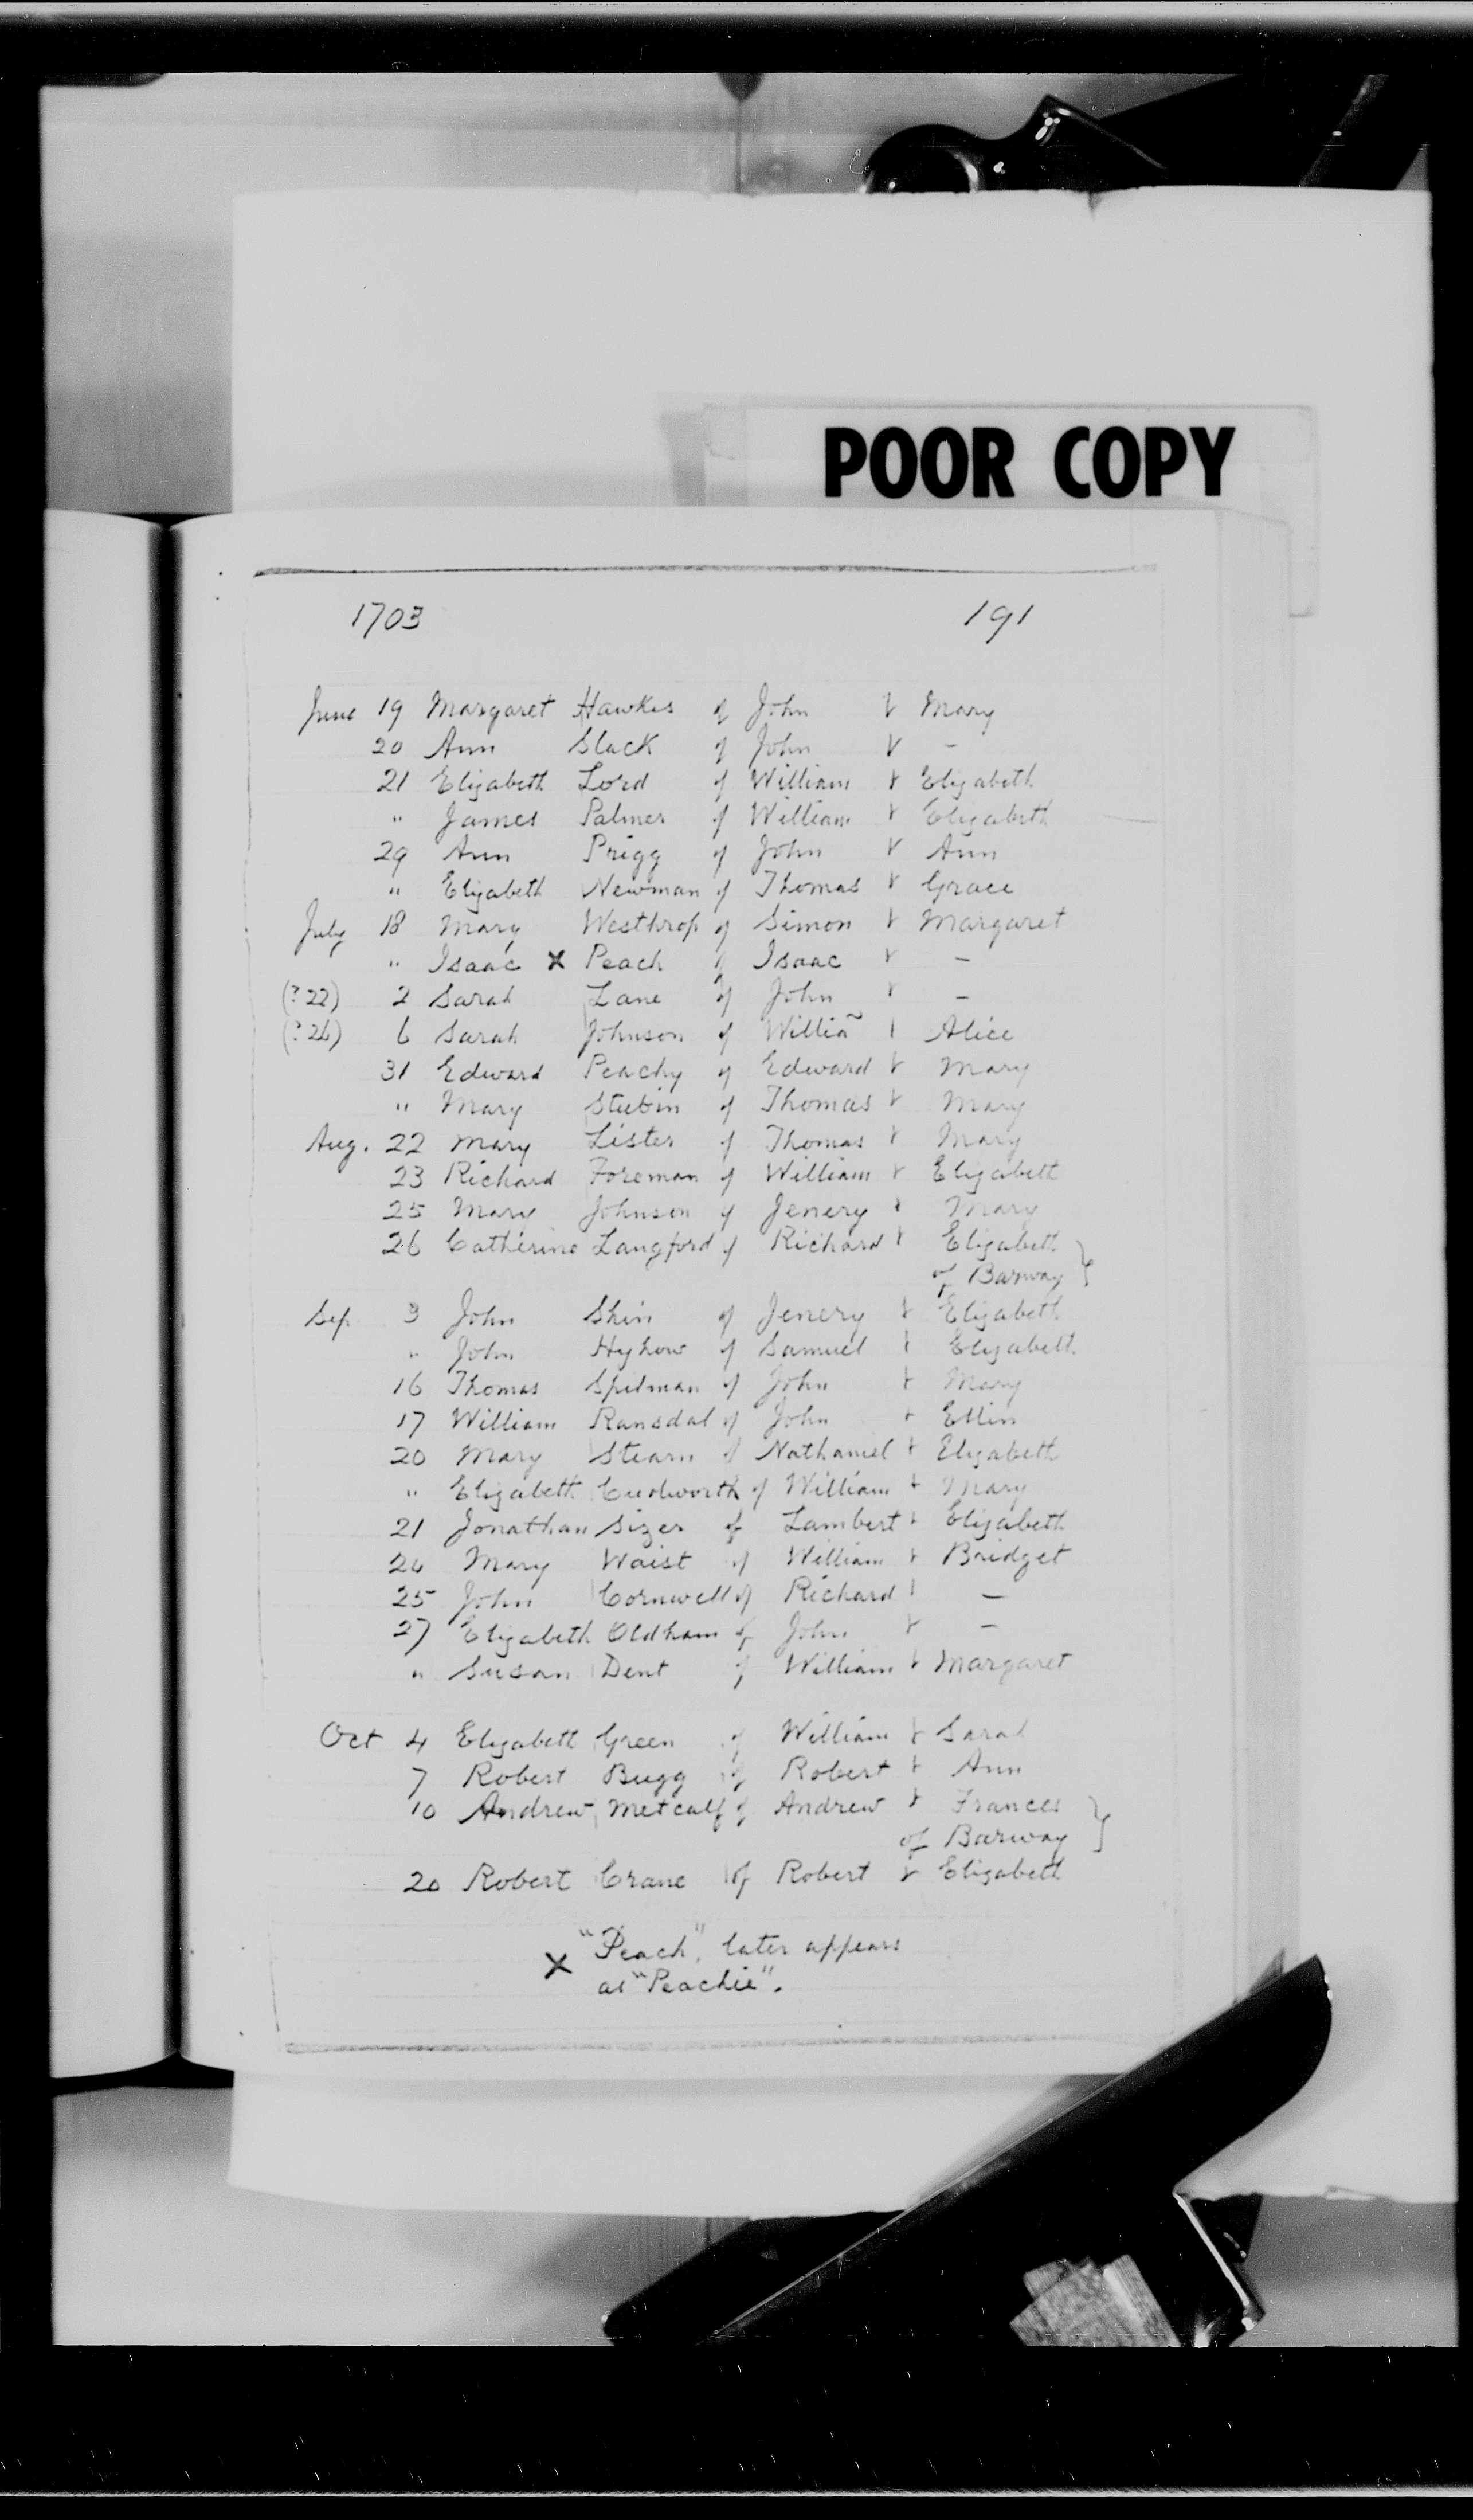 POOR COPY
1703 191
June 19 Margaret Hawkes of John & Mary
20 Ann Slack of John & -
21 Elizabeth Lord of William & Elizabeth
" James Palmer of William & Elizabeth
29 Ann Prigg of John & Ann
" Elizabeth Newman of Thomas & Grace
July 18 Mary Westhrop of Simon & Margaret
" Isaac x Peach of Isaac & -
(?22) 2 Sarah Lane of John & -
(?26) 6 Sarah Johnson of Williã & Alice
31 Edward Peachy of Edward & Mary
" Mary Stubin of Thomas & Mary
Aug. 22 Mary Lister of Thomas & Mary
23 Richard Foreman of William & Elizabeth
25 Mary Johnson of Jenery & Mary
26 Catherine Langford of Richard & Elizabeth }
of Barway
Sep 3 John Shin of Jenery & Elizabeth
" John Hyhow of Samuel & Elizabeth
16 Thomas Spilman of John & Mary
17 William Ransdal of John & Ellin
20 Mary Stearn of Nathaniel & Elizabeth
" Elizabeth Cudworth of William & Mary
21 Jonathan Sizer of Lambert & Elizabeth
24 Mary Waist of William & Bridget
25 John Cornwell of Richard & -
27 Elizabeth Oldham of John & -
" Susan Dent of William & Margaret
Oct 4 Elizabeth Green of William & Sarah
7 Robert Bugg of Robert & Ann
10 Andrew Metcalf of Andrew & Frances }
of Barway
20 Robert Crane of Robert & Elizabeth
x "Peach" later appears
as "Peachie".